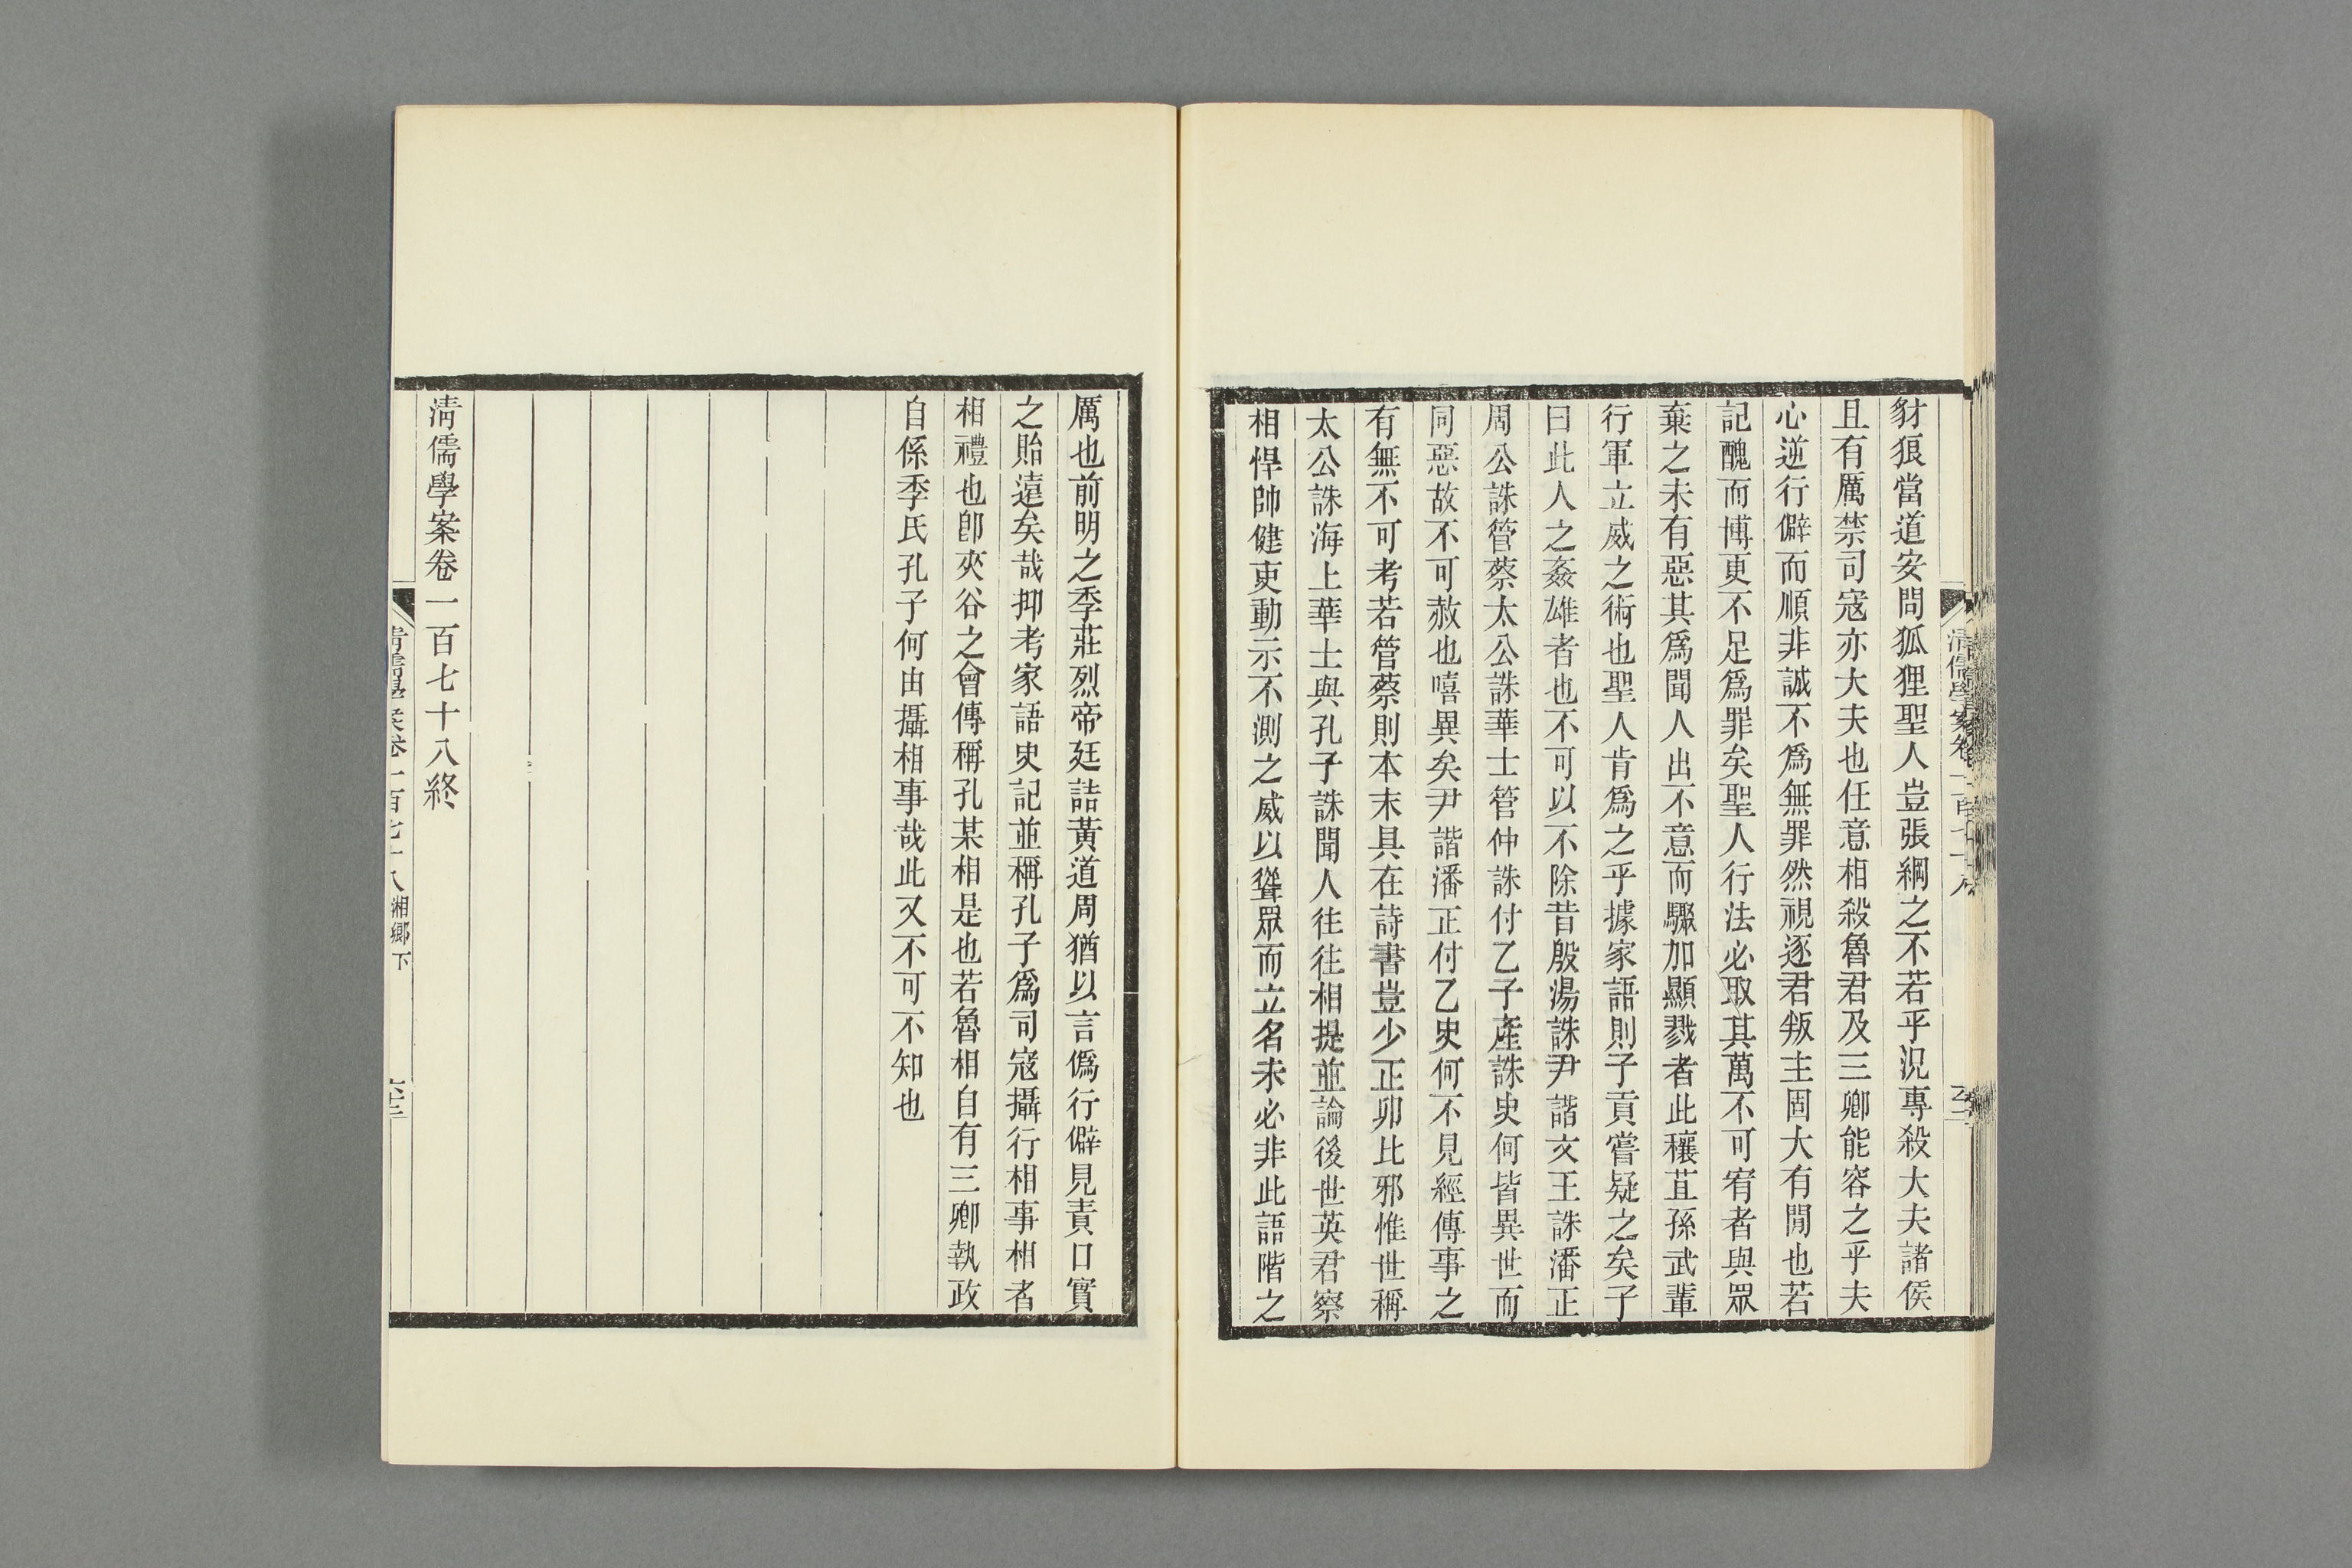 豺狼當道安問狐狸聖人豈張綱之不若乎況專殺大夫諸侯
且有厲禁司寇亦大夫也任意相殺魯君及三卿能容之乎夫
心逆行僻而順非誠不爲無罪然視逐君叛主固大有閒也若
記醜而博更不足爲罪矣聖人行法必取其萬不可宥者與眾
棄之未有惡其爲聞人出不意而驟加顯戮者此穰苴孫武輩
行軍立威之術也聖人肯爲之乎據家語則子貢嘗疑之矣子
曰此人之姦雄者也不可以不除昔殷湯誅尹諧文王誅潘正
周公誅管蔡太公誅華士管仲誅付乙子產誅史何皆異世而
同惡故不可赦也嘻異矣尹諧潘正付乙史何不見經傳事之
有無不可考若管蔡則本末具在詩書豈少正卯比邪惟世稱
太公誅海上華士與孔子誅聞人往往相提並論後世英君察
相悍帥健吏動示不測之威以聳眾而立名未必非此語階之
厲也前明之季莊烈帝廷詰黃道周猶以言僞行僻見責口實
之貽遠矣哉抑考家語史記並稱孔子爲司寇攝行相事相者
相禮也卽夾谷之會傳稱孔某相是也若魯相自有三卿執政
自係季氏孔子何由攝相事哉此又不可不知也
清儒學案卷一百七十八終
清儒學案卷一百七十八 湘鄉下